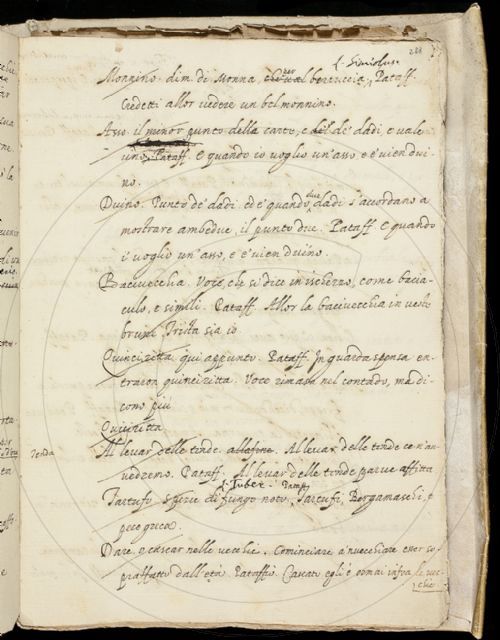 288
L. Simiolus.
Monnino. dim. di Monna, che val bertuccia. Pataff.
Credetti allor vedere un bel monnino.
Asso. il minor punto delle carte, e de' dadi, e vale
uno. Pataff. E quando io voglio un'asso, e e' vien dui-
no.
Duino. Punto de' dadi. ed è quando due dadi s'accordano a
mostrare ambedue, il punto due. Pataff. E quando
i' voglio un'asso, e e' vien duino.
Bacivecchia. Voce, che si dice in ischerzo, come bacia-
culo, e simili. Pataff. Allor la bacivecchia in vesta
bruna Trista sia io.
Quinciritta qui appunto. Pataff. In guarda spensa en-
traron quinciritta. Voce rimasa nel contado, ma di-
cono più
Quiritta
Tenda
Al levar delle tende. alla fine. Al levar delle tende ce n'av-
vedremo. Pataff. Al levar delle tende parve afflitta
L. Tuber.
Tartufo. Spezie di fungo noto. Pataff. Tartufi, Bergamaschi, e
pece greca.
Dare, o cascar nelle vecchie. Cominciare a invecchiare esser so-
praffatto dall'età Pataffio. Cascato egli è omai infra le vec-
chie